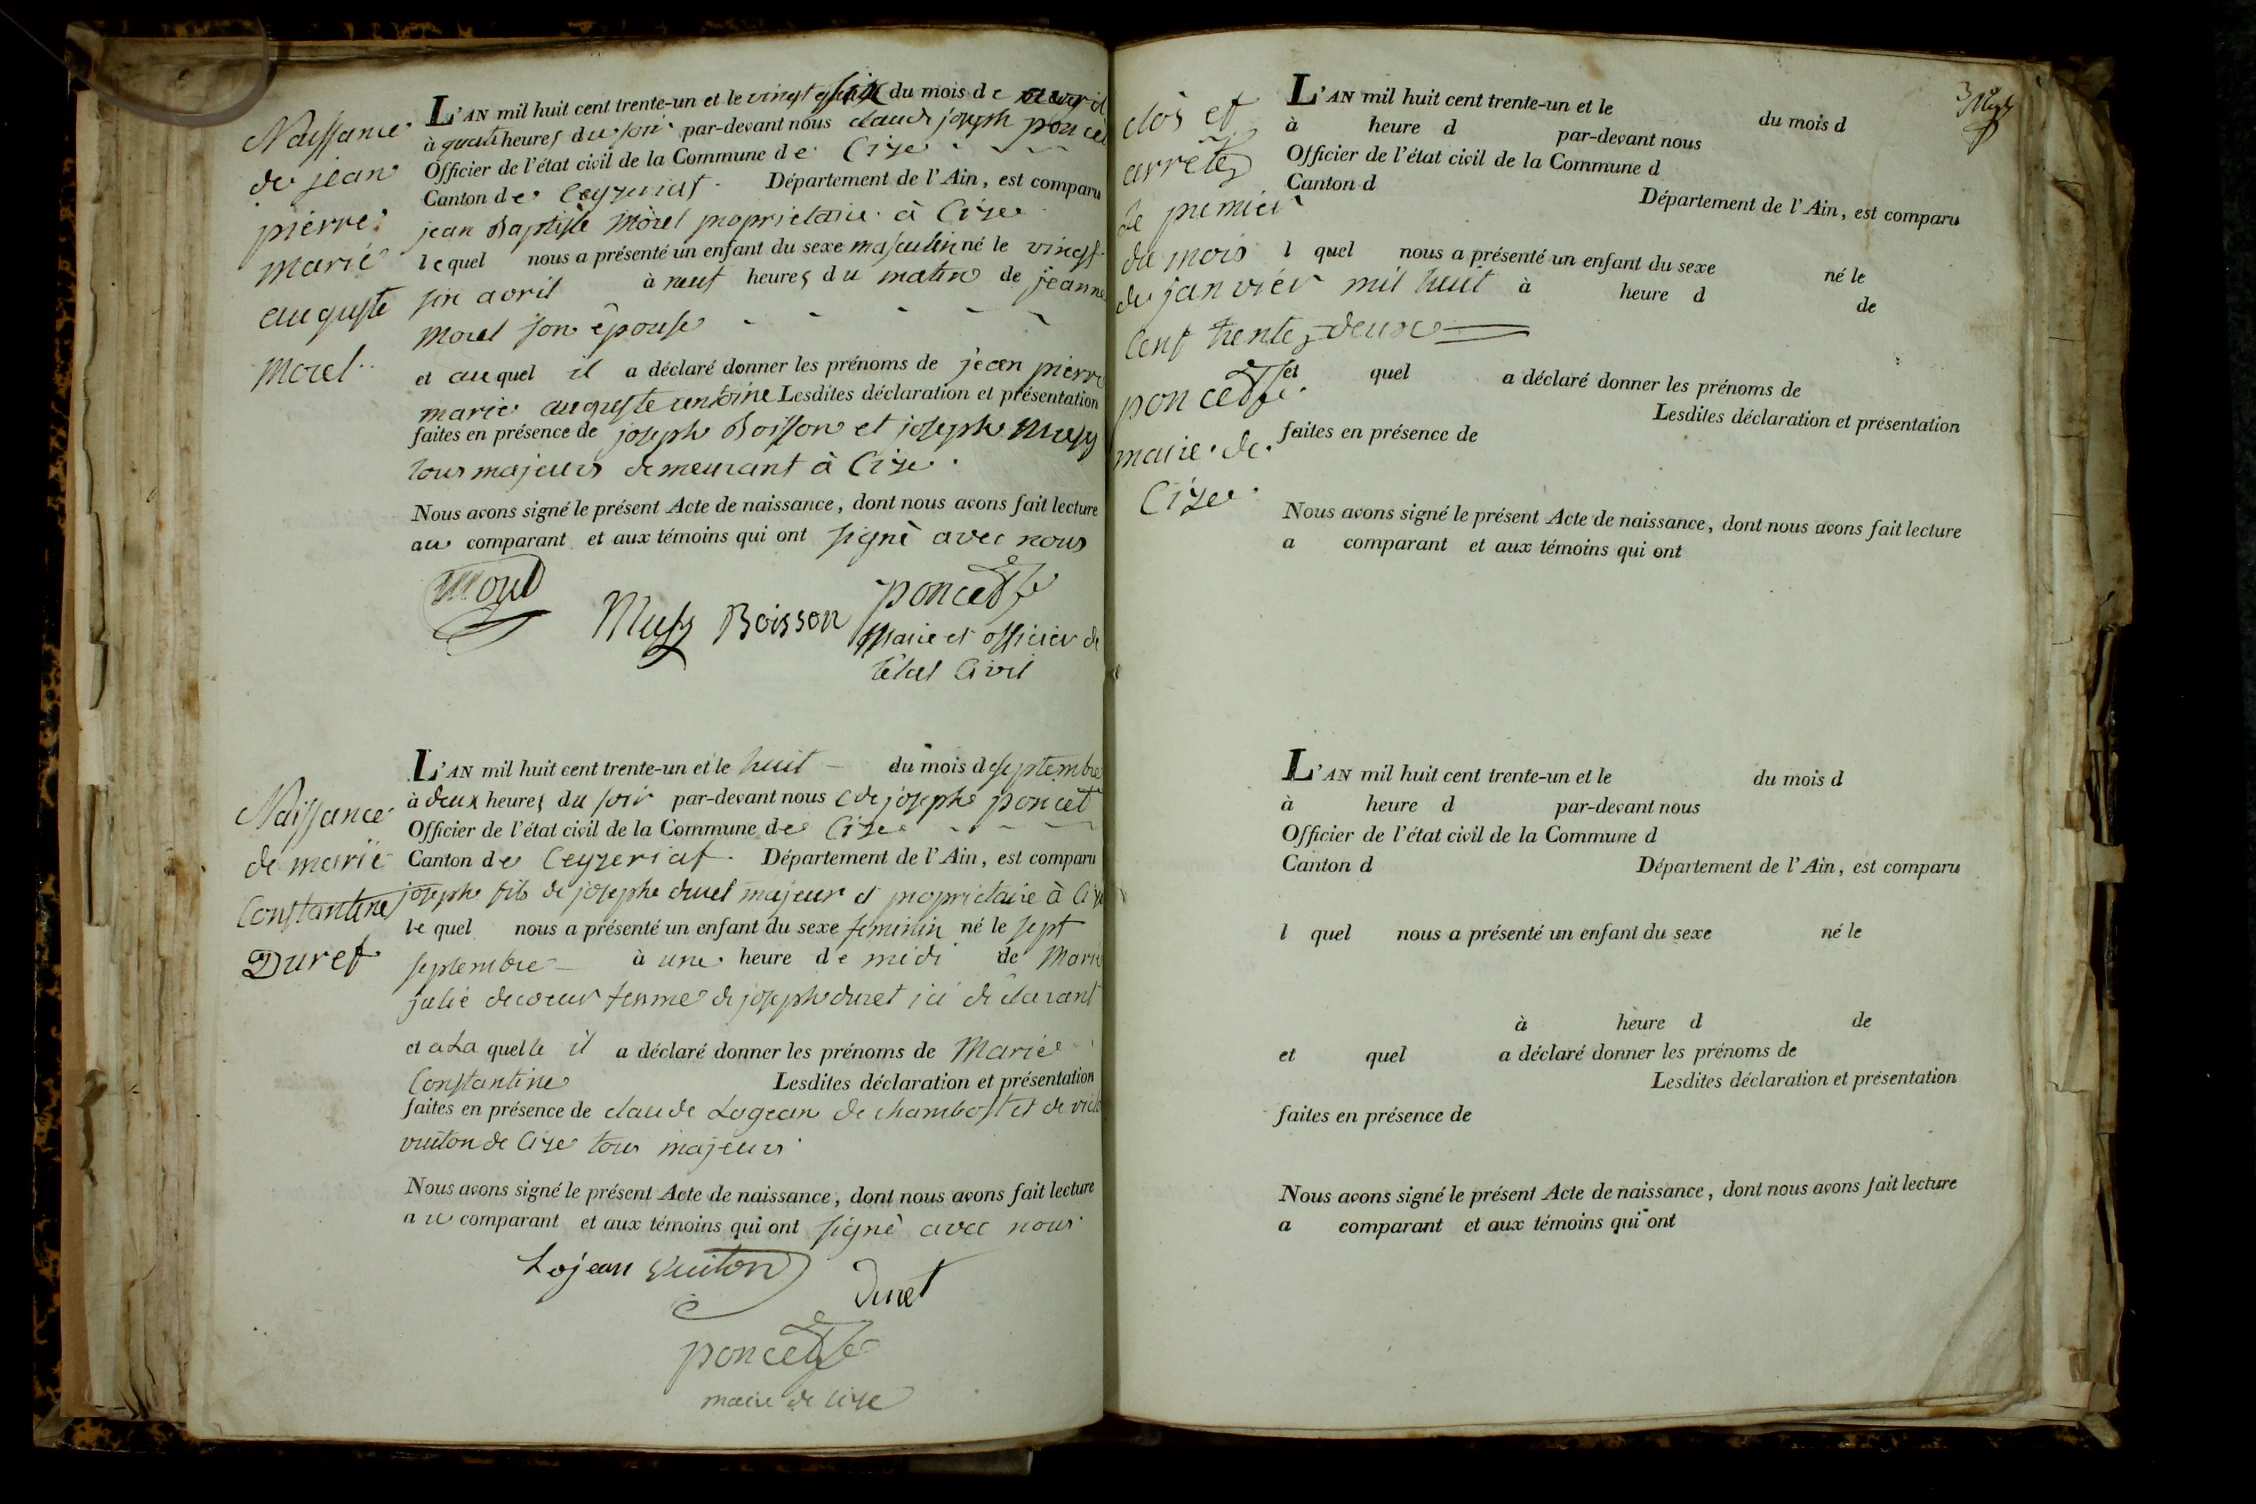 Naissance
de jean
pierre
marie
auguste
morel
L'AN mil huit cent trente-un et le vingt six du mois de avril
à quatre heures du soir par-devant nous claude joseph poncet
Officier de l'état civil de la Commune de Cize
Canton de Ceyzeriat Département de l'Ain, est comparu
jean Baptiste morel proprietaire à Cize
le quel nous a présenté un enfant du sexe masculin né le vingt
six avril à neuf heures du matin de jeanne
morel son épouse
et au quel il a déclaré donner les prénoms de jean pierre
marie auguste antoine Lesdites déclaration et présentation
faites en présence de joseph Boisson et joseph Musy
tous majeurs demeurant à Cize
Nous avons signé le présent Acte de naissance, dont nous avons fait lecture
au comparant et aux témoins qui ont signé avec nous
Morel
Musy Boisson poncet
Maire et officier de
l'état Civil
Naissance
de marie
Constantine
Duret
L'AN mil huit cent trente-un et le huit du mois de septembre
à deux heures du soir par-devant nous Cde joseph poncet
Officier de l'état civil de la Commune de Cize
Canton de Ceyzeriat Département de l'Ain, est comparu
joseph fils de josephe duret majeur et proprietaire à Cize
le quel nous a présenté un enfant du sexe feminin né le sept
septembre à une heure de midi de Marie
julie decoeur femme de joseph duret ici déclarant
et a La quelle il a déclaré donner les prénoms de Marie
Constantine Lesdites déclaration et présentation
faites en présence de claude Logean de chambost et de
vuiton de Cize tous majeurs
Nous avons signé le présent Acte de naissance, dont nous avons fait lecture
au comparant et aux témoins qui ont signé avec nous
Lojean Vuiton
Duret
poncet
maire de Cize
clos et
arrêté
le premier
du mois
de janvier mil huit
cent trente deux
poncet
maire de
Cize
L'AN mil huit cent trente-un et le du mois d
à heure d par-devant nous
Officier de l'état civil de la Commune d
Canton d Département de l'Ain, est comparu
l quel nous a présenté un enfant du sexe né le
à heure d de
et quel a déclaré donner les prénoms de
Lesdites déclaration et présentation
faites en présence de
Nous avons signé le présent Acte de naissance, dont nous avons fait lecture
a comparant et aux témoins qui ont
L'AN mil huit cent trente-un et le du mois d
à heure d par-devant nous
Officier de l'état civil de la Commune d
Canton d Département de l'Ain, est comparu
l quel nous a présenté un enfant du sexe né le
à heure d de
et quel a déclaré donner les prénoms de
Lesdites déclaration et présentation
faites en présence de
Nous avons signé le présent Acte de naissance, dont nous avons fait lecture
a comparant et aux témoins qui ont